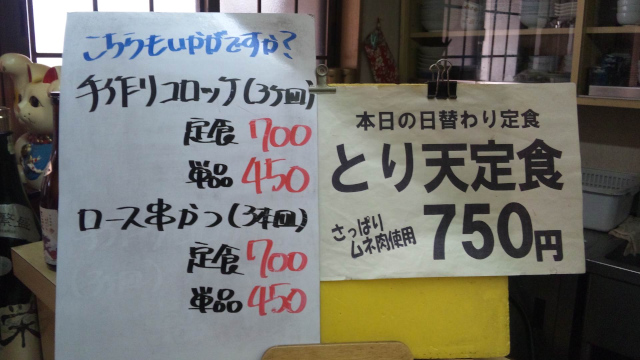 こちらもいかがですか?
手作りコロッケ(3ケ回)
定食 700
単品 450
ロース串かつ(3本回)
定食 700
単品 450
本日の日替わり定食
とり天定食
さっぱり
ムネ肉使用
750円
栄